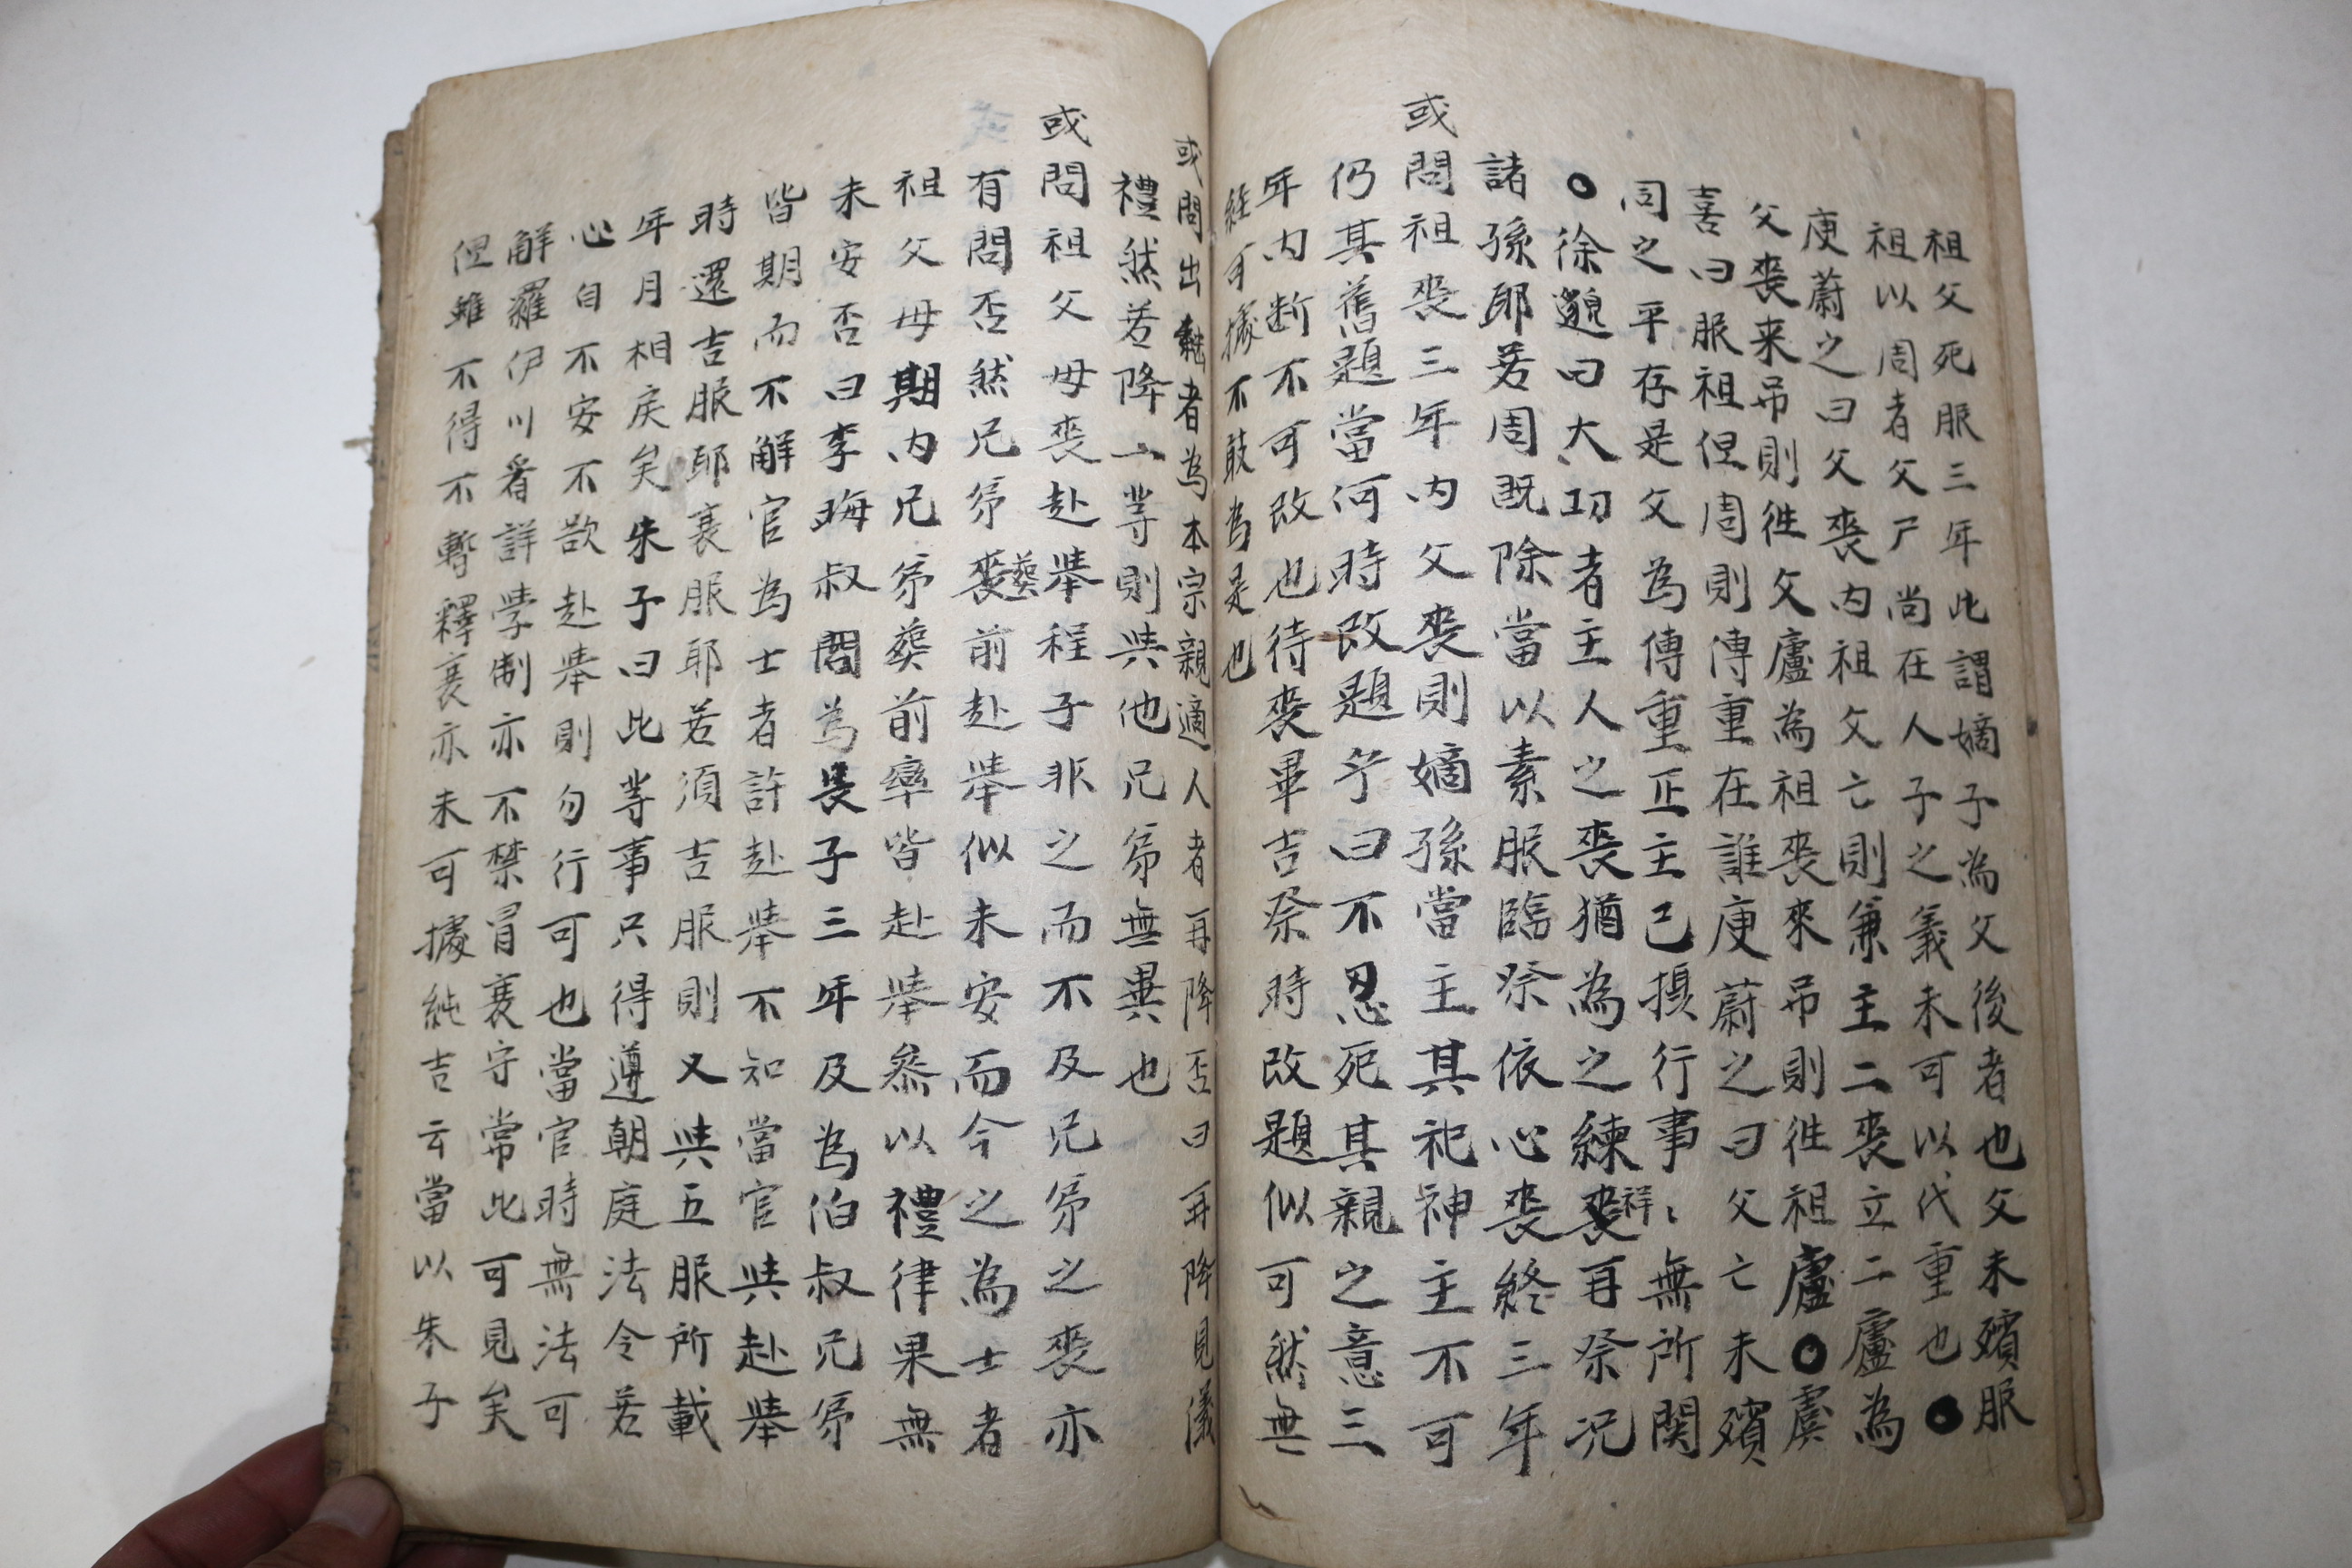 祖父死服三年此謂嫡子為父後者也父未殯服
祖以周者父尸尚在人子之義未可以代重也●
庾蔚之曰父喪内祖父亡則兼主二喪立二廬為
父喪来吊則徃父廬為祖喪來吊則徃祖廬○虞
喜曰服祖但周則傳重在誰庾蔚之曰父亡未殯
同之平存是父為傳重正主己攝行事無所関
○徐邈曰大功者主人之喪猶為之練祥再祭况
諸孫耶若周既除當以素服臨祭依心喪終三年
或問祖喪三年内父喪則嫡孫當主其祀神主不可
仍其舊題當何時改題乎曰不忍死其親之意三
年内断不可改也待喪畢吉祭時改題似可然無
經可據不敢為是也
或問出繼者為本宗親適人者再降否曰再降見儀
禮然若降一等則與他兄弟無異也
或問祖父母喪赴擧程子非之而不及兄弟之喪亦
有問否然兄弟葬前赴擧似未安而今之為士者
祖父母期内兄弟葬前率皆赴擧叅以禮律果無
未安否曰李晦叔問為長子三年及為伯叔兄弟
皆期而不解官為士者許赴擧不知當官與赴擧
時還吉服耶衰服耶若須吉服則又與五服所載
年月相戾矣朱子曰此等事只得遵朝庭法令若
心自不安不欲赴擧則勿行可也當官時無法可
解羅伊川看詳學制亦不禁冒衰守常此可見矣
但雖不得不暫釋衰亦未可據純吉云當以朱子